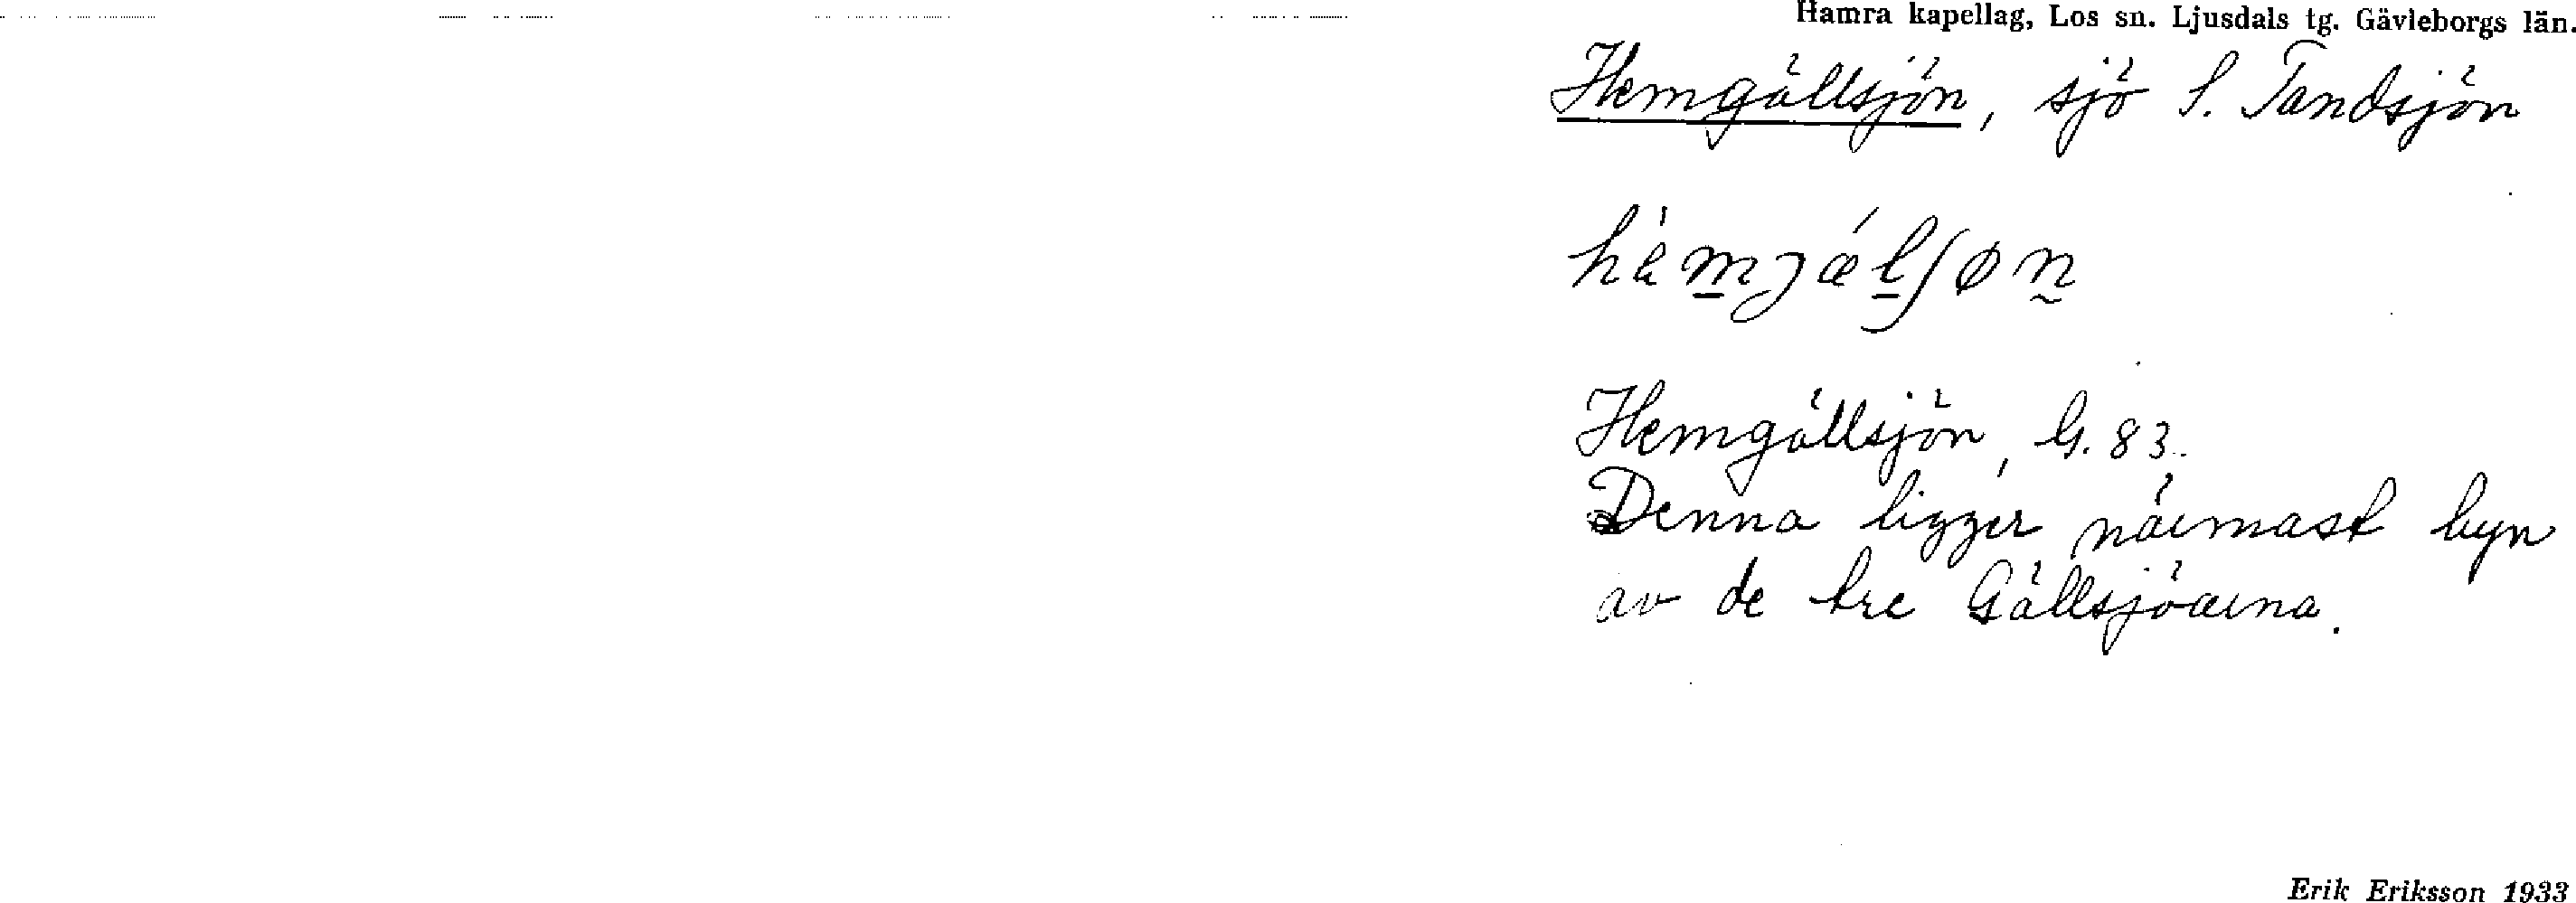 Hamra kapellag, Los sn. Ljusdals tg. Gävleborgs län.
Hemgällsjön, sjö S. Tandsjön
hèmjælʃøn
Hemgällsjön, G. 83.
Denna ligger närmast byn
av de tre Gällsjöarna.
Erik Eriksson 1933